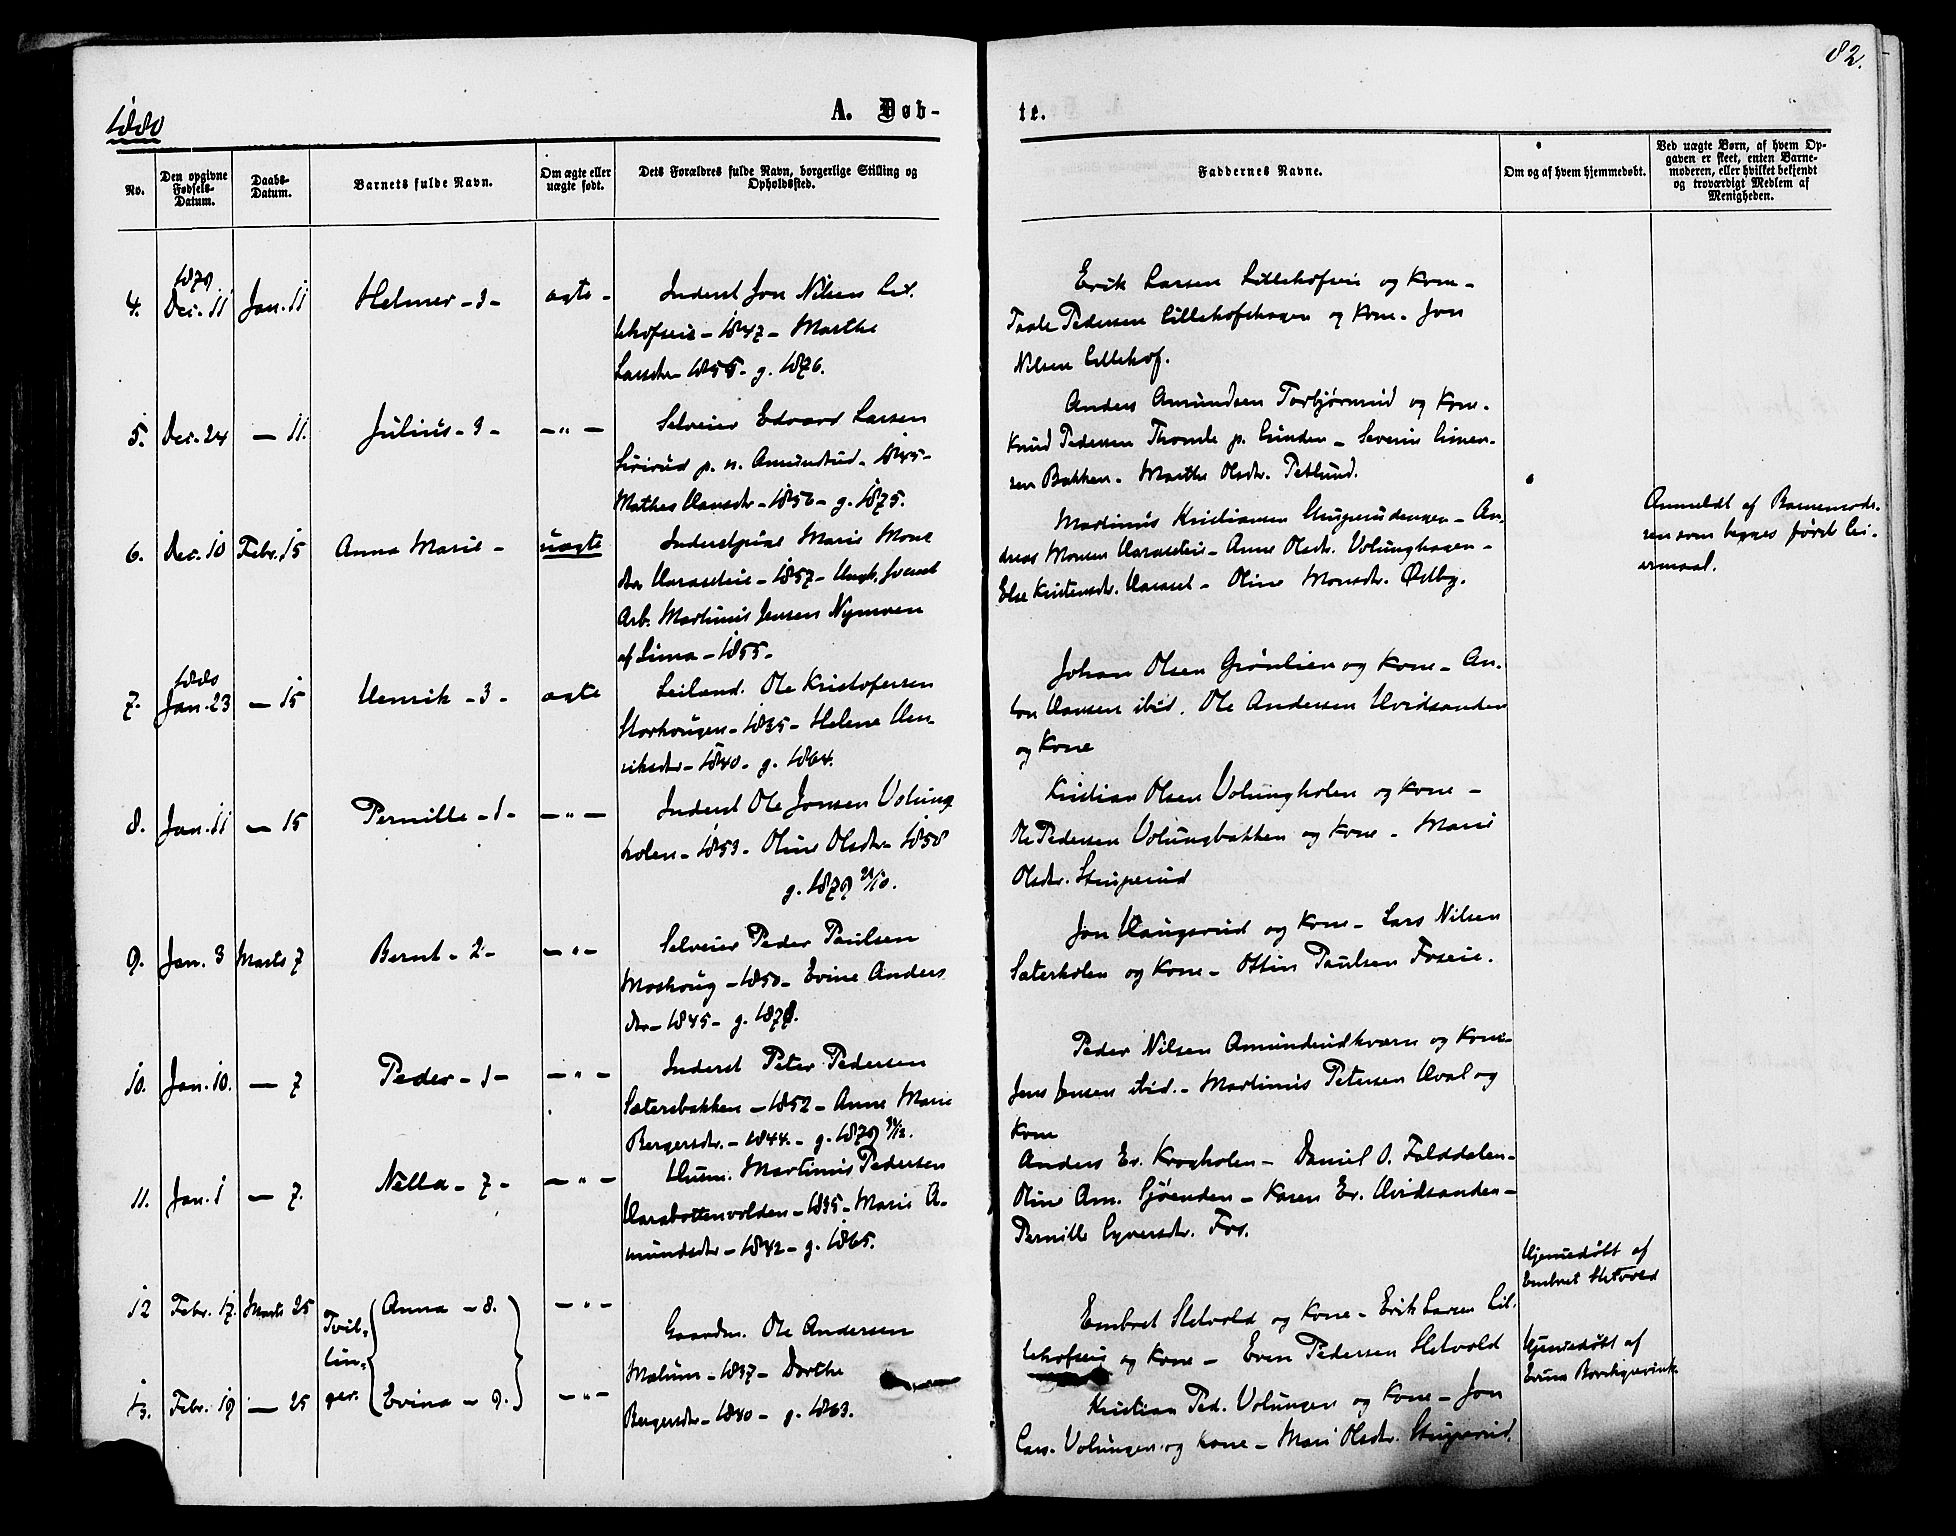 82.
1880
A. Døb-
te.
No.
Den opgivne Fødsels-Datum.
Daabs-Datum.
Barnets fulde Navn.
Om ægte eller uægte født.
Dets Forældres fulde Navn, borgerlige Stilling og Opholdssted.
Faddernes Navne.
Om og af hvem hjemmedøbt.
Ved uægte Børn, af hvem Opgaven er skeet, enten Barnemoderen, eller hvilket bekjendt og troværdigt Medlem af Menigheden.
4. 1879 Dec. 11 Jan. 11 Helmer - 3 - ægte -
Inderst Jon Nilsen Lil-
lehofseie - 1847 - Marthe
Larsdtr - 1855 - g. 1876.
Erik Larsen Lillehofseie og Kone -
Taale Pedersen Lillehofshagen og Kone. Jon
Nilsen Lillehof.
5. Dec. 24 — 11. Julius - 3 - — " —
Selveier Edvard Larsen
p. n. Amundrud - 1845 -
Mathea Hansdtr - 1850 - g. 1875.
Anders Amundsen Torbjørnrud og Kone.
Knud Pedersen Thomle p. Linden - Severin Simen-
sen Bakken - Marthe Olsdtr. Petlund.
6. Dec. 10 Febr. 15 Anna Marie - uægte
Inderstpige Marie Mons
dtr Haraseteie - 1857 - Ungk. svensk
Arb. Martinus Jensen Nymoen
af Lima - 1855 -
Martinus Kristiansen Strupurudengen - An-
dreas Monsen Haraseteie - Anne Olsdtr. Volunghagen -
Else Kristensdtr. Haraset - Oline Monsdtr. Østby.
Anmeldt af Barnemode-
ren som begges første Lei-
ermaal.
7. 1880 Jan. 23 — 15 Henrik - 3 - ægte
Leiland. Ole Kristofersen
Storhougen - 1835 - Helene Hen-
riksdtr - 1840 - g. 1864.
Johan Olsen Grønlien og Kone - An-
ton Hansen ibid. Ole Andersen Hvidsanden
og Kone
8. Jan. 11 — 15 Pernille - 1 - — " —
Inderst Ole Jonsen Volung
holen - 1853 - Oline Olsdtr - 1858
g. 1879 /10.
Kristian Olsen Volungholen og Kone -
Ole Pedersen Volungbakken og Kone - Marie
Olsdtr. Struperud
9. Jan. 3 Marts 7 Bernt - 2 - — " —
Selveier Peder Paulsen
Moshoug - 1850 - Evine Anders
dtr - 1845 - g. 1878.
Jon Haugerud og Kone - Lars Nilsen
Sæterholen og Kone - Ottin Paulsen Foseie.
10. Jan. 10. — 7 Peder - 1 - — " —
Inderst Peter Pedersen
Sætersbakken - 1852 - Anne Marie
Bergersdtr. - 1844 - g. 1879 /12.
Peder Nilsen Amundrudkværn og Kone -
Jens Jensen ibid. - Martinus Petersen Hval og
Kone
11. Jan. 1 — 7. Nilla - 7 - — " —
Husm. Martinus Pedersen
Harabottenvolden - 1835 - Marie A-
mundsdtr - 1842 - g. 1865.
Anders Ev. Krogholen - Daniel O. Falddalen -
Oline Am. Sjøenden - Karen Ev. Hvidsanden -
Pernille Syversdtr. Fos.
12 Febr. 17. Marts 25 Tvil-lin-ger. Anna - 8. — " —
Gaardm. Ole Andersen
Mælum - 1837 - Dorthe
Bergersdtr - 1840 - g. 1863.
Embret Sletvold og Kone - Erik Larsen Lil-
lehofseie og Kone - Even Pedersen Sletvold
Hjemmedøbt af
Embret Sletvold
13. Febr. 19 — 25 Evina - 9. — " —
Kristian Ped. Volungen og Kone - Jon
Lars. Volungen og Kone - Mari Olsdtr. Struperud.
Hjemmedøbt af